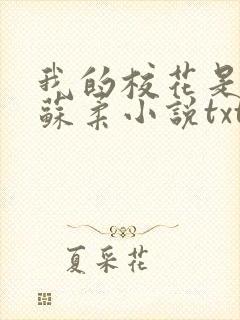 我的校花是
蘇柔小說txt
夏采花